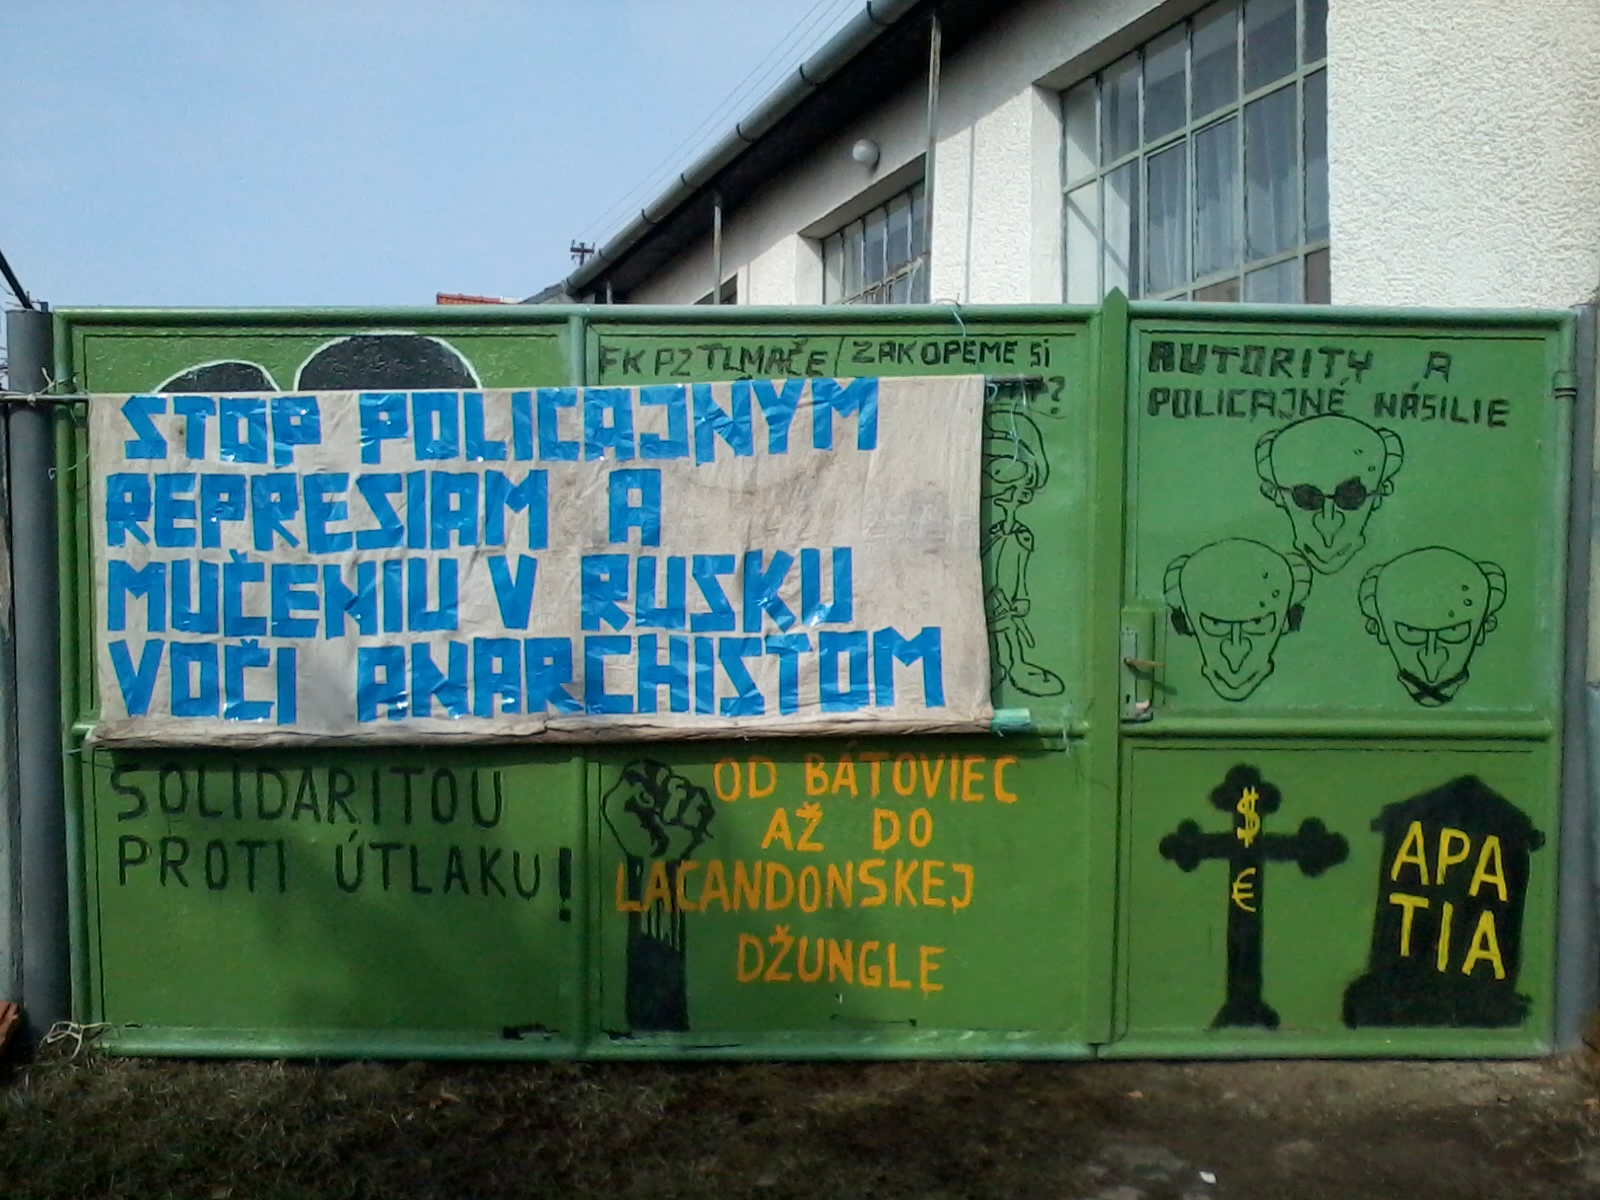 FK PZ TLMAČE / ZAKOPEME SI
?
AUTORITY A
POLICAJNÉ NÁSILIE
STOP POLICAJNÝM
REPRESIAM A
MUČENIU V RUSKU
VOČI ANARCHISTOM
SOLIDARITOU
PROTI ÚTLAKU!
OD BÁTOVIEC
AŽ DO
LACANDONSKEJ
DŽUNGLE
$
€
APA
TIA